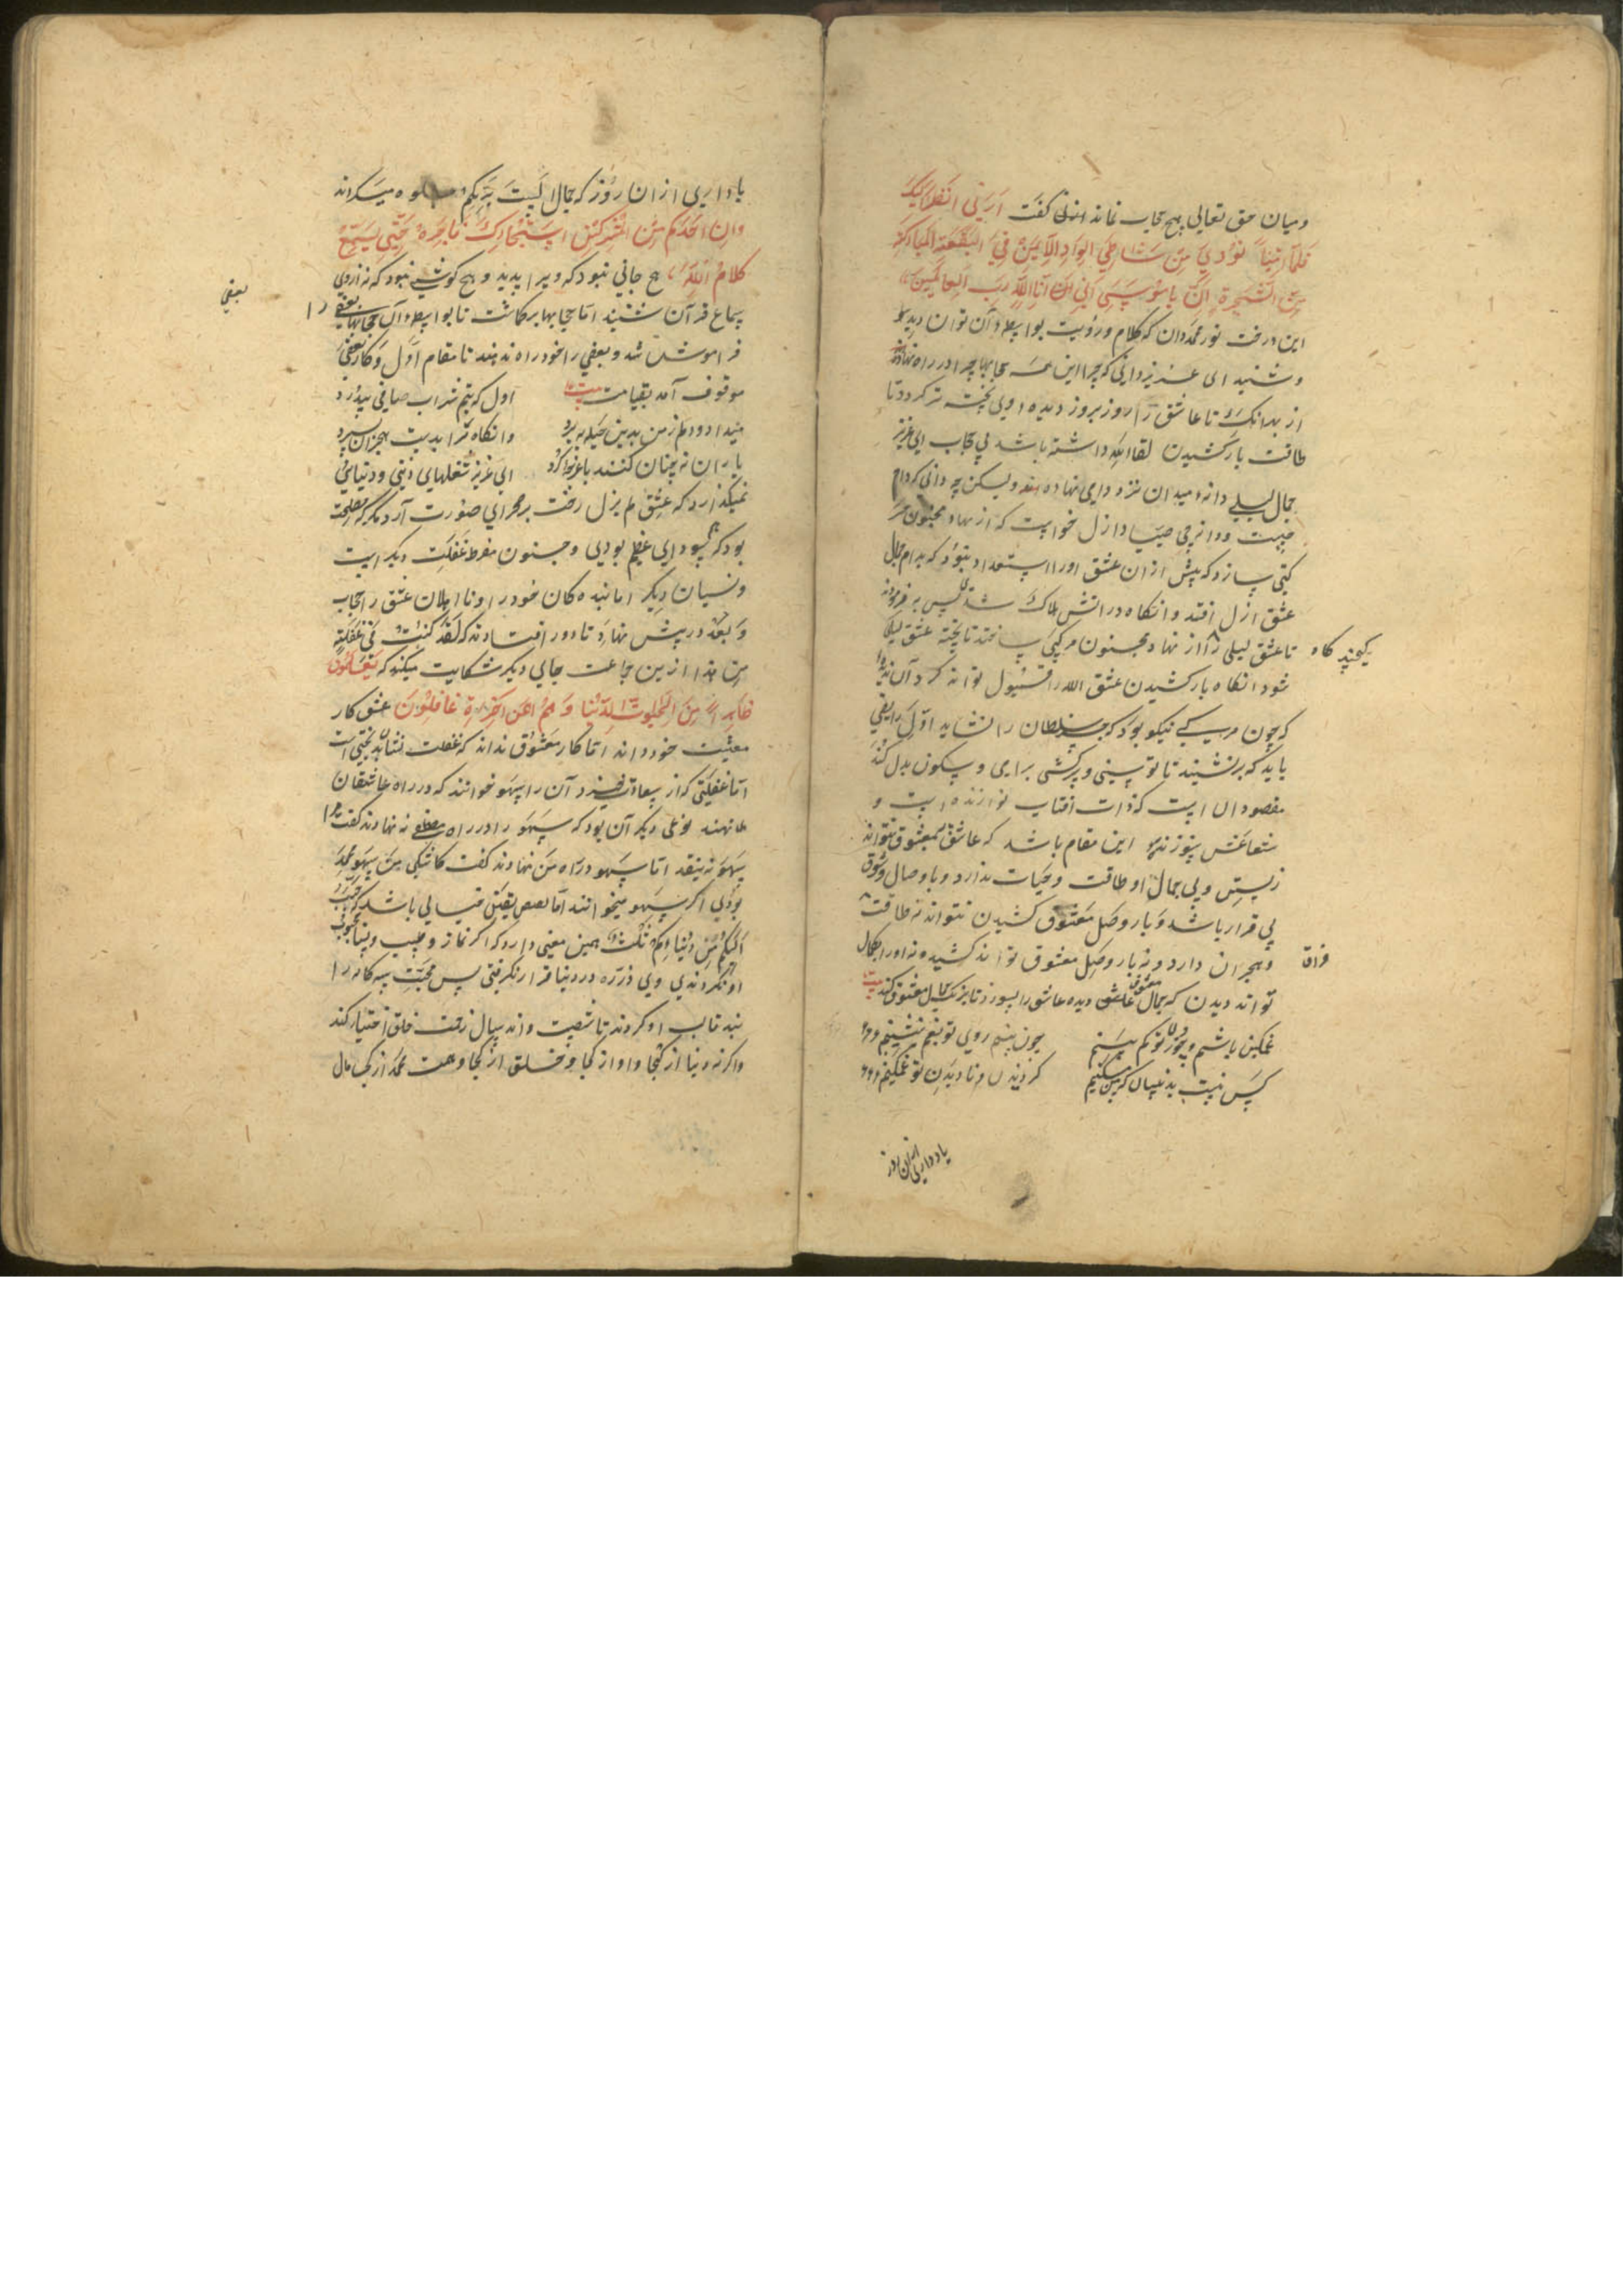 و میان حق تعالی هیچ حجاب نماند گفت ارنی انظر الیک
فلما اتیها نودی من شاطئ الواد الایمن فی البقعة المبارکة
من الشجرة ان یا موسی انی انا الله رب العالمین
این درخت نور محمد دان که کلام و رویت بواسطه آن توان دید
و شنید ای عزیز دانی که چرا این همه حجابها چرا در راه نهادند
از بهر آنک تا عاشق را روز بروز دیده او پخته تر کردد تا
طاقت بار کشیدن لقا الله داشته باشد بی حجاب ای عزیز
جمال لیلی دانه میدان نزد دامی نهاده ولیکن چه دانی که دام
چیست و دانه چی صیاد ازل خواست که از نهاد مجنون مر
کبی سازد که پیش ازان عشق او را استعداد نبود که بدام جمال
عشق ازل افتد و انکاه در اتش هلاک شدی پس بفرمودند
تا عشق لیلی را از نهاد مجنون مرکبی ساختند تا پخته عشق لیلی
یکچند کاه
شود انکاه بار کشیدن عشق الله را قبول تواند کرد آن ندیدهٔ
که چون مرکبی نیکو بود که جز سلطان را نشاید اول رایضی
باید که برنشیند تا توسنی و سرکشی برای و سکون بدل کند
مقصود ان است که ذات افتاب نوازنده است و
شعاعش سوزنده این مقام باشد که عاشق بی معشوق نتواند
زیستن و بی جمال او طاقت و حیات ندارد و با وصال و شوق
بی قرار باشد و بار وصل معشوق کشیدن نتواند نه طاقت
فراق
و هجران دارد و نه بار وصل معشوق تواند کشید و نه او را بکمال
تواند دیدن که جمال معشوق دیده عاشق را بسوزد تا برنک جمال معشوق کند بیت
غمکین باشم چو روی تو کم بینم چون بینم روی تو بغم بنشینم
کس نیست بدینسان که من مسکینم کز دیدن و نادیدن تو غمکینم
یاد داری ازان روز
یاد داری ازان روز که جمال الست بربکم جلوه میکردند
وان احد من المشرکین استجارک فاجره حتی یسمع
کلام الله هیچ جانی نبود که ویرا بدید و هیچ کوشی نبود که نه ازوی
سماع قرآن شنید اما حجابها برکماشت تا بواسطه آن حجابها بعضی را
بعضی
فراموش شد و بعضی را خود راه ندهند تا مقام اول و کار بعضی
موقوف آمد بقیامت بیت اول که بتم شراب صافی بیدرد
میداد و دلم ز من بدین حیله ببرد وانکاه مرا بدست هجران سپرد
یاران نه چنان کنند با غربا کرد ای عزیز شغلهای دینی و دنیایی
نمیکذارد که عشق لم یزل رخت بر صحرای صورت آرد مکر که مصلحت
بود که سودای عظیم بودی و جنون مفرط غفلت دیکر است
و نسیان دیکر اما بنده کان خود را و نا اهلان عشق را حجاب
و بعد در پیش نهاد تا دور افتادند که لقد کنت فی غفلة
من هذا ازین جماعت جای دیکر شکایت میکند که یعلمون
ظاهرا من الحیوة الدنیا و هم عن الاخرة غافلون عشق کار
معیشت خود داند اما کار معشوق نداند که غفلت
اما غفلتی که از سعادت خیزد آن را سهو خوانند که در راه عاشقان
نهند نوعی دیکر آن بود که سهو را در راه مصطفی نه نهادند کفت مرا
سهو نه بیفتد اما سهو در راه من نهادند کفت کاشکی من سهو محمد
بودی اکر سهو میخوانند
الیکم من دنیاکم ثلث همین معنی دارد که اکر نماز و طیب و نسا محبوب
او نکردندی وی ذره در دنیا قرار نکرفتی پس محبت سه کانه را
بند قالب او کردند تا شصت و اند سال زحمت خلق اختیار کند
و اکر نه دنیا از کجا و او از کجا و خلق از کجا و همت محمد از کجا مال